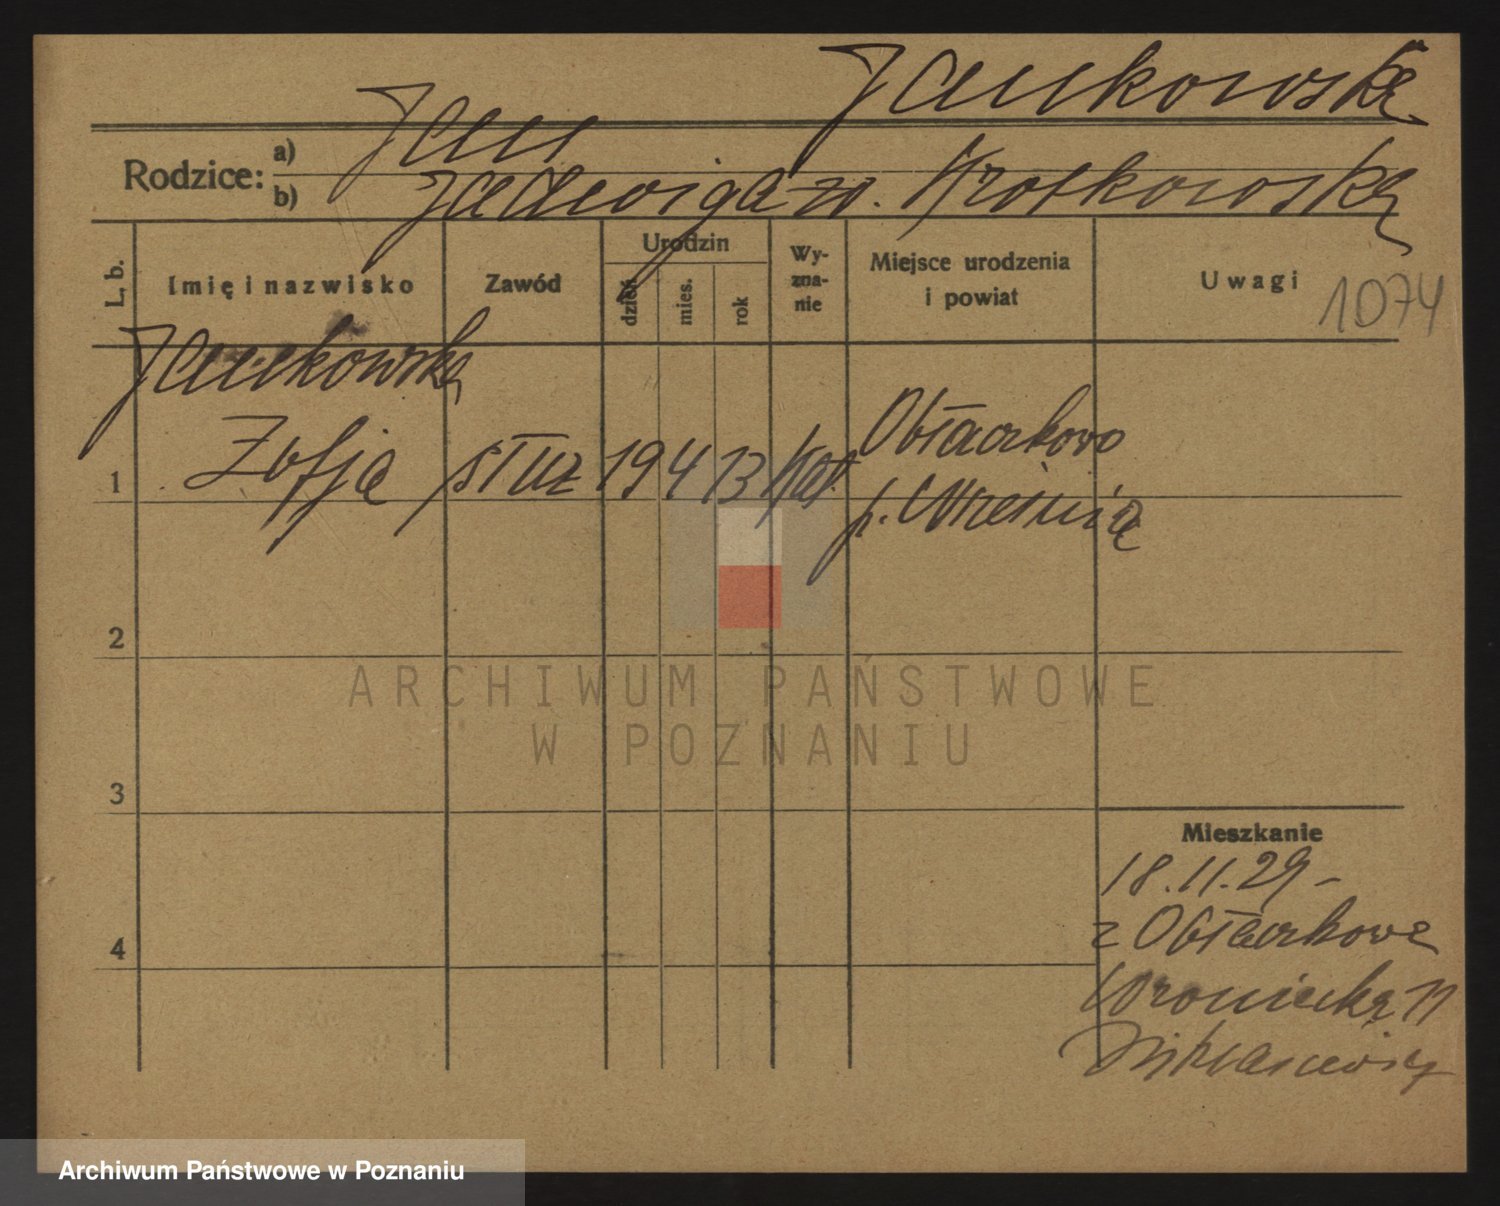 Jankowska
Rodzice: a) Jan
b) Jadwiga z d. Krotkowska
L. b. Imię i nazwisko Zawód Urodzin dzień mies. rok Wyznanie Miejsce urodzenia i powiat Uwagi
1074
Jankowska
1 Zofja służ 19 4 13 kat. Obłaczkowo
p. Września
2
ARCHIWUM PAŃSTWOWE
W POZNANIU
3
Mieszkanie
18.11.29 -
z Obłaczkowa
4
Wroniecka 11
Archiwum Państwowe w Poznaniu